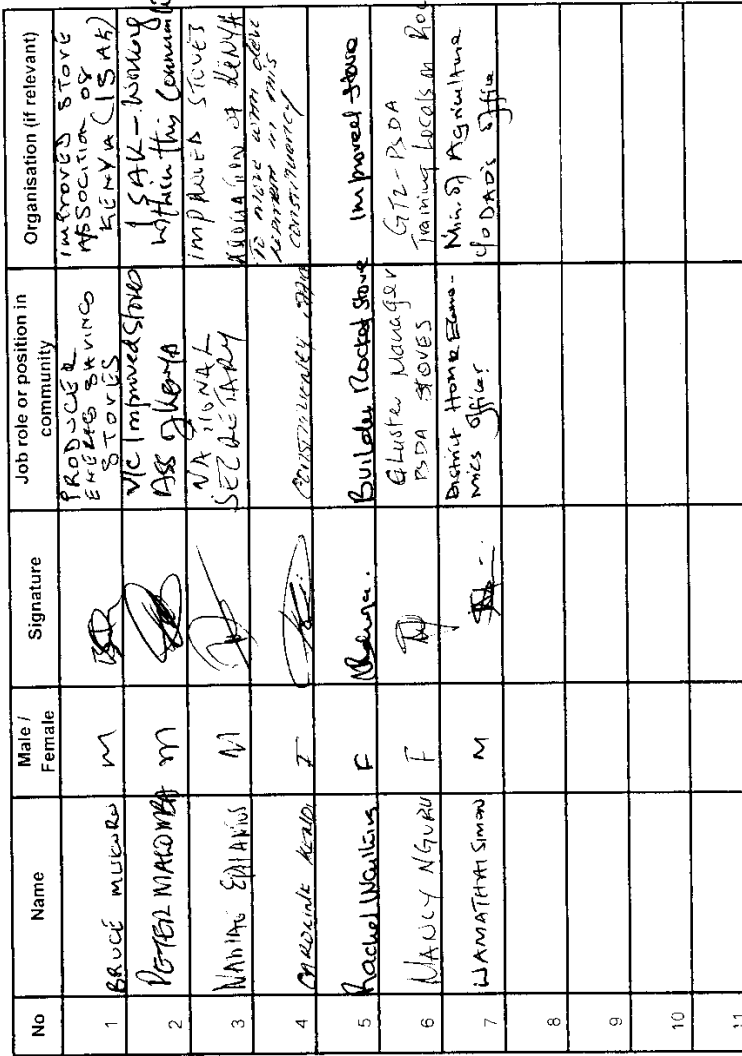 No Name Male / Female Signature Job role or position in community Organisation (if relevant)
1 BRUCE MUKURU M PRODUCER ENERG SAVING STOVES IMPROVED STOVE ASSOCITION OF KENYA (ISAK)
2 PETER MAKOMBA M V/C Improved Stoves Ass of Kenya ISAK - Working within this
3 M NATIONAL SECRETARY IMPROVED STOVES OF KENYA
4 CAROLINE F constituency To move with in this constituency
5 Rachel F Builder Rocket Stove Improved stove
6 NANCY NGURU F Cluster Manager PSDA STOVES GTZ-PSDA Training Locals on
7 WAMATHAI SIMON M District Home Econo-mics Officer Min. of Agriculture c/o DAO's office
8
9
10
11